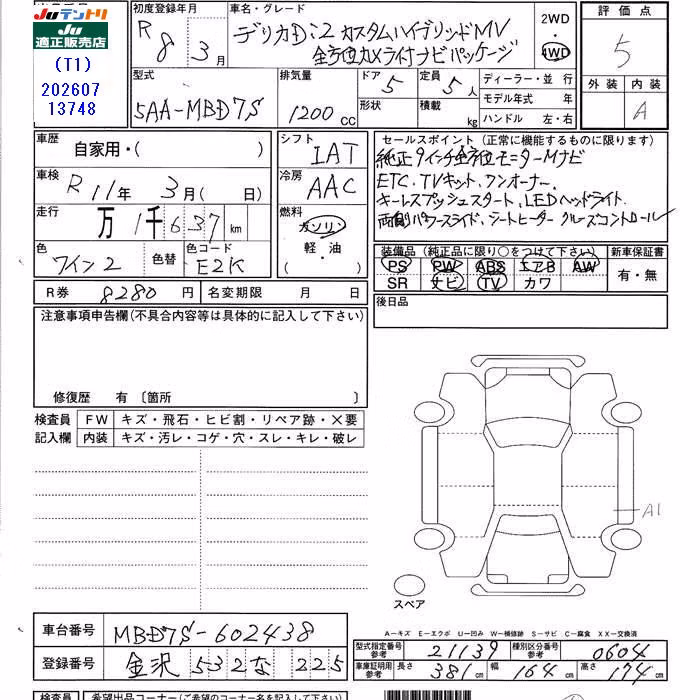 JUテントリ
JU
適正販売店
(T1)
202607
13748
初度登録年月
R 8年 3月
車名・グレード
デリカD:2 カスタムハイブリッドMV
全方位カメラ付ナビパッケージ
2WD
・
4WD
評価点
5
外装 内装
A
型式
5AA-MBD7S
排気量
1200 cc
ドア 5
形状
定員 5人
積載 kg
ディーラー・並行
モデル年式 年
ハンドル 左・右
車歴
自家用・( )
車検 R 11年 3月( 日)
走行 万 1千637 km
色 ワイン2 色替
色コード E2K
シフト
IAT
冷房
AAC
燃料
ガソリン
軽・油
( )
セールスポイント (正常に機能するものに限ります)
純正9インチ全方位モニターMナビ
ETC.TVキット.ワンオーナー.
キーレスプッシュスタート.LEDヘッドライト.
両側パワースライド.シートヒーター クルーズコントロール
装備品 (純正品に限り○をつけて下さい)
PS PW ABS エアB AW
SR ナビ TV カワ
新車保証書
有・無
R券 8280 円
名変期限 月 日
後日品
注意事項申告欄(不具合内容等は具体的に記入して下さい)
修復歴 有〔箇所 〕
検査員
記入欄
FW キズ・飛石・ヒビ割・リペア跡・×要
内装 キズ・汚レ・コゲ・穴・スレ・キレ・破レ
A1
スペア
A-キズ E-エクボ U-凹み W-補修跡 S-サビ C-腐食 XX-交換済
車台番号 MBD7S-602438
登録番号 金沢 532 な 225
型式指定番号
参考
21139
種別区分番号
参考
0604
車庫証明用
参考
長さ 381 cm 幅 164 cm 高さ 174 cm
検査員
希望出品コーナー(ご希望のコーナー名を記入下さい)